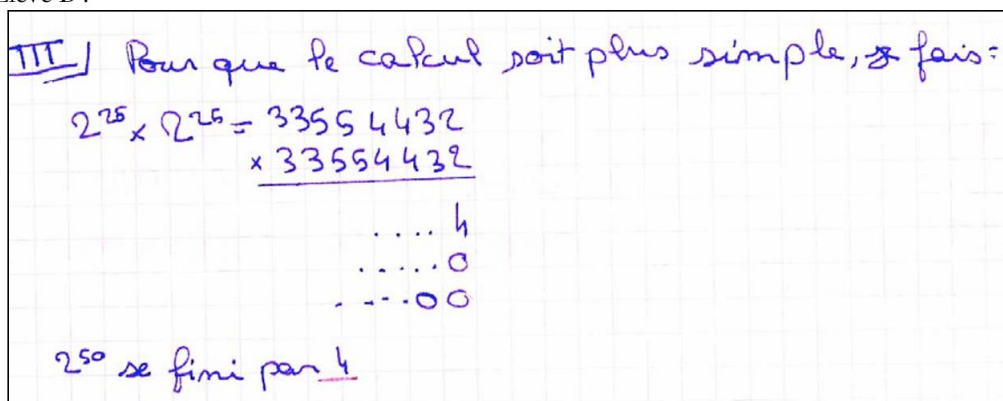 III) Pour que le calcul soit plus simple, je fais:
2²⁵ × 2²⁵ = 33554432
× 33554432
....4
.....0
.....00
2⁵⁰ se fini par 4